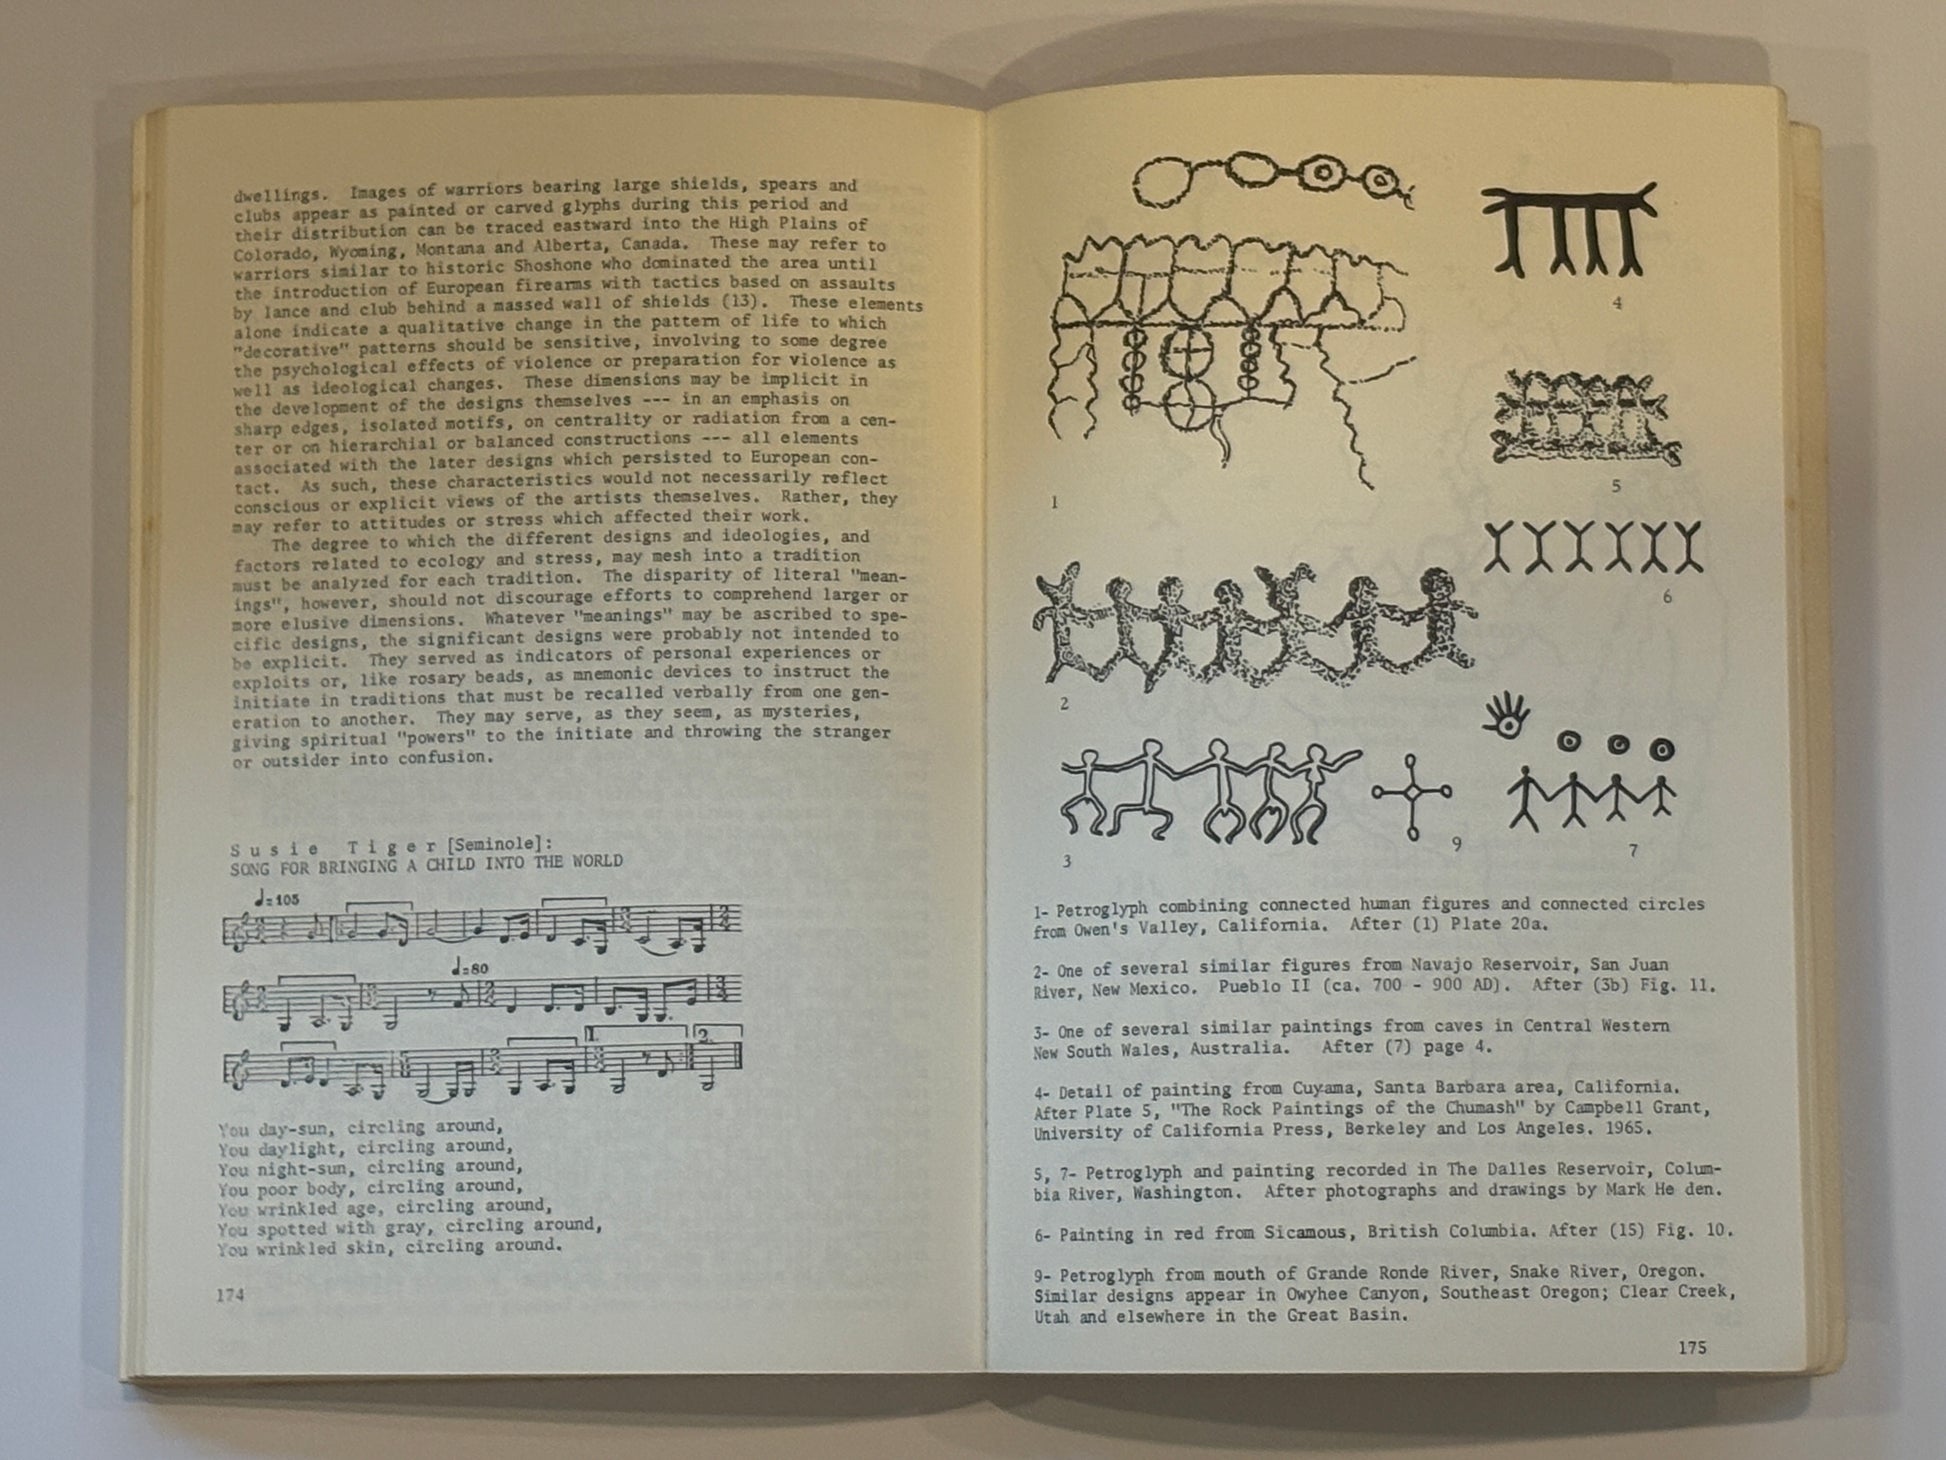 dwellings.  Images of warriors bearing large shields, spears and
clubs appear as painted or carved glyphs during this period and
their distribution can be traced eastward into the High Plains of
Colorado, Wyoming, Montana and Alberta, Canada.  These may refer to
warriors similar to historic Shoshone who dominated the area until
the introduction of European firearms with tactics based on assaults
by lance and club behind a massed wall of shields (13).  These elements
alone indicate a qualitative change in the pattern of life to which
"decorative" patterns should be sensitive, involving to some degree
the psychological effects of violence or preparation for violence as
well as ideological changes.  These dimensions may be implicit in
the development of the designs themselves --- in an emphasis on
sharp edges, isolated motifs, on centrality or radiation from a cen-
ter or on hierarchial or balanced constructions --- all elements
associated with the later designs which persisted to European con-
tact.  As such, these characteristics would not necessarily reflect
conscious or explicit views of the artists themselves.  Rather, they
may refer to attitudes or stress which affected their work.
The degree to which the different designs and ideologies, and
factors related to ecology and stress, may mesh into a tradition
must be analyzed for each tradition.  The disparity of literal "mean-
ings", however, should not discourage efforts to comprehend larger or
more elusive dimensions.  Whatever "meanings" may be ascribed to spe-
cific designs, the significant designs were probably not intended to
be explicit.  They served as indicators of personal experiences or
exploits or, like rosary beads, as mnemonic devices to instruct the
initiate in traditions that must be recalled verbally from one gen-
eration to another.  They may serve, as they seem, as mysteries,
giving spiritual "powers" to the initiate and throwing the stranger
or outsider into confusion.
Susie Tiger [Seminole]:
SONG FOR BRINGING A CHILD INTO THE WORLD
♩=105
♩=80
1. 2.
You day-sun, circling around,
You daylight, circling around,
You night-sun, circling around,
You poor body, circling around,
You wrinkled age, circling around,
You spotted with gray, circling around,
You wrinkled skin, circling around.
174
4
5
1
6
2
9
7
3
1- Petroglyph combining connected human figures and connected circles
from Owen's Valley, California.  After (1) Plate 20a.
2- One of several similar figures from Navajo Reservoir, San Juan
River, New Mexico.  Pueblo II (ca. 700 - 900 AD).  After (3b) Fig. 11.
3- One of several similar paintings from caves in Central Western
New South Wales, Australia.  After (7) page 4.
4- Detail of painting from Cuyama, Santa Barbara area, California.
After Plate 5, "The Rock Paintings of the Chumash" by Campbell Grant,
University of California Press, Berkeley and Los Angeles. 1965.
5, 7- Petroglyph and painting recorded in The Dalles Reservoir, Colum-
bia River, Washington.  After photographs and drawings by Mark He den.
6- Painting in red from Sicamous, British Columbia. After (15) Fig. 10.
9- Petroglyph from mouth of Grande Ronde River, Snake River, Oregon.
Similar designs appear in Owyhee Canyon, Southeast Oregon; Clear Creek,
Utah and elsewhere in the Great Basin.
175